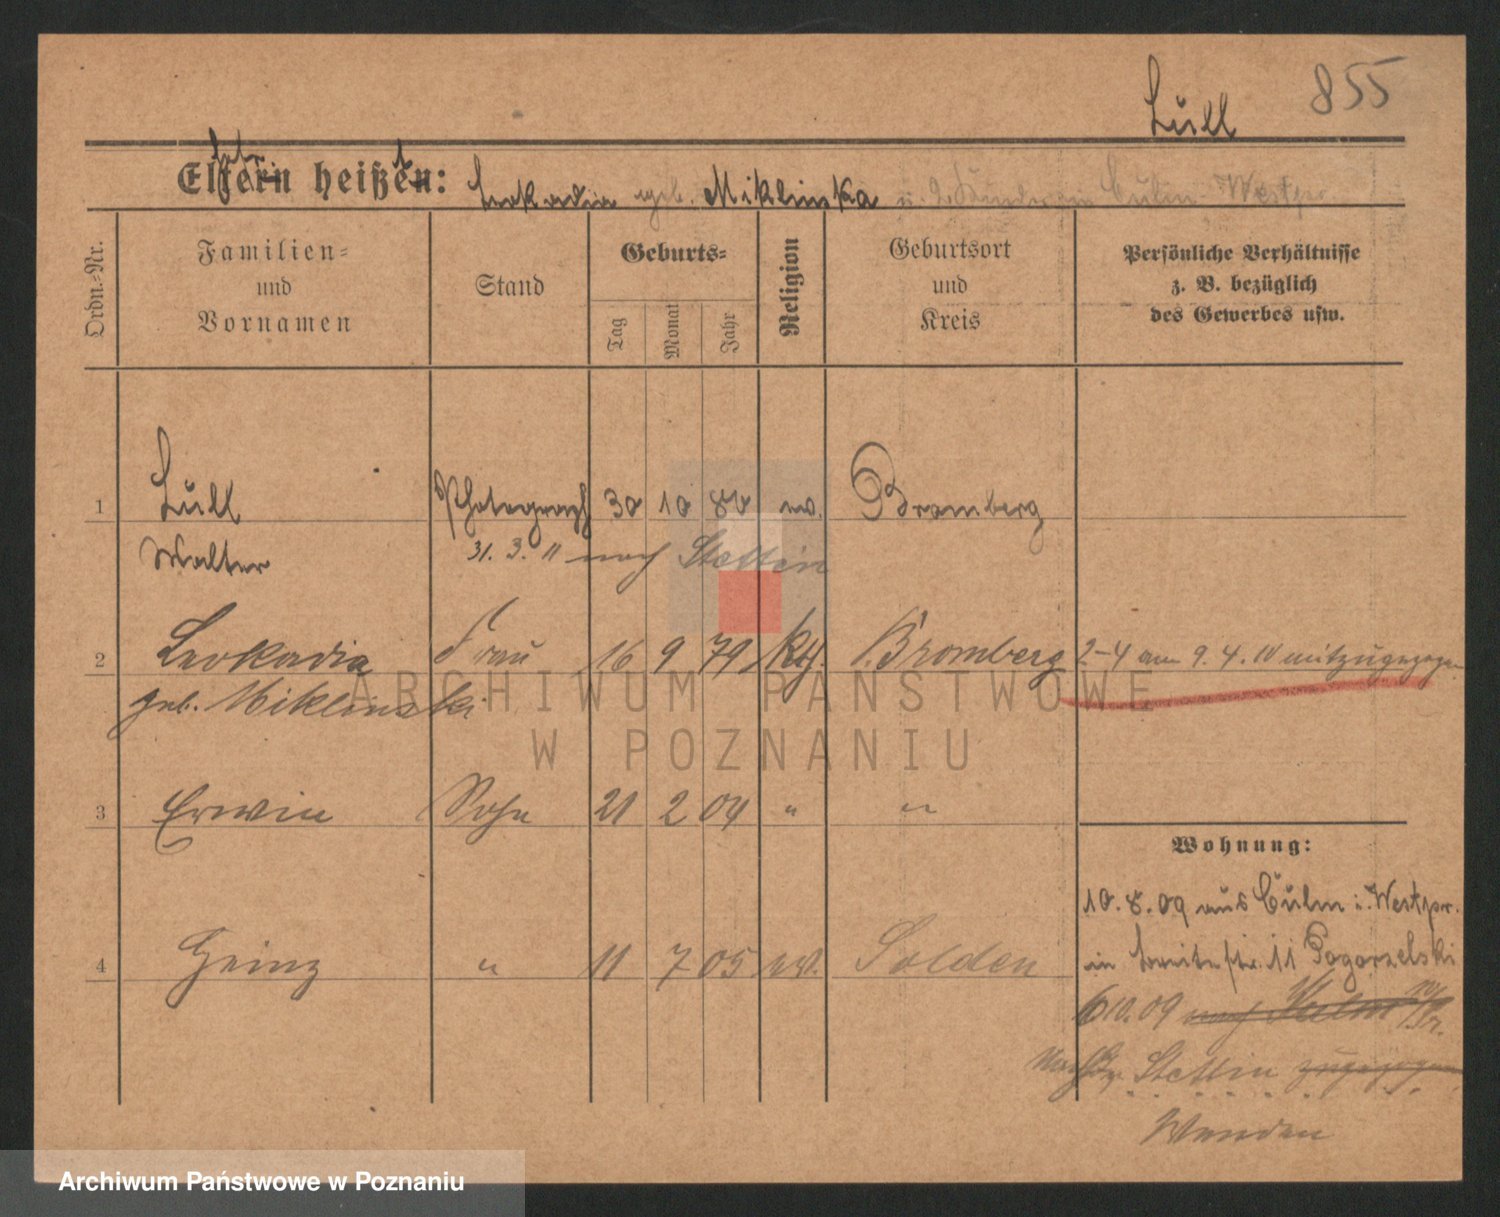 Lüll 855
Eltern heißen:
Leokadia geb. Miklinska u. 2 Kinder in Culm Westpr
Ordn.-Nr.
Familien-
und
Vornamen
Stand
Geburts-
Tag
Monat
Jahr
Religion
Geburtsort
und
Kreis
Persönliche Verhältnisse
z. B. bezüglich
des Gewerbes usw.
1 Lüll Photograph 30 10 80 ev. Bromberg
Walter 31. 3. 11 nach Stettin
2 Leokadia Frau 16 9 79 kth. Bromberg 2-4 am 9. 4. 10 mitzugezogen
geb. Miklinski
3 Erwin Sohn 21 2 04 " "
Wohnung:
10. 8. 09 aus Culm i. Westpr.
4 Heinz " 11 7 05 ev. Solden
in Breitestr. 11 Pogorzelski
6 10. 09 nach Kulm W/Pr.
nach Stettin zugezogen
Wenden
ARCHIWUM PAŃSTWOWE
W POZNANIU
Archiwum Państwowe w Poznaniu